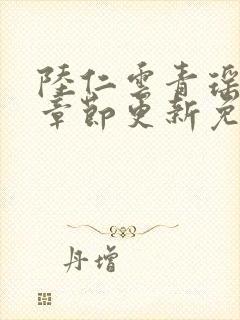 陸仁雲青瑤
章節更新免
丹增